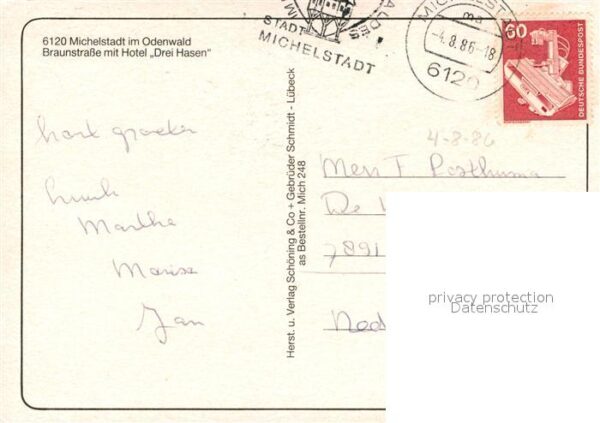 6120 Michelstadt im Odenwald
Braunstraße mit Hotel „Drei Hasen"
STADT
MICHELSTADT
MICHELSTADT
ma
-4.8.86-18
6120
60
DEUTSCHE BUNDESPOST
4-8-86
Herst. u. Verlag Schöning & Co + Gebrüder Schmidt - Lübeck
as Bestellnr. Mich 248
Martha
Jan
Posthuma
De
7891
privacy protection
Datenschutz